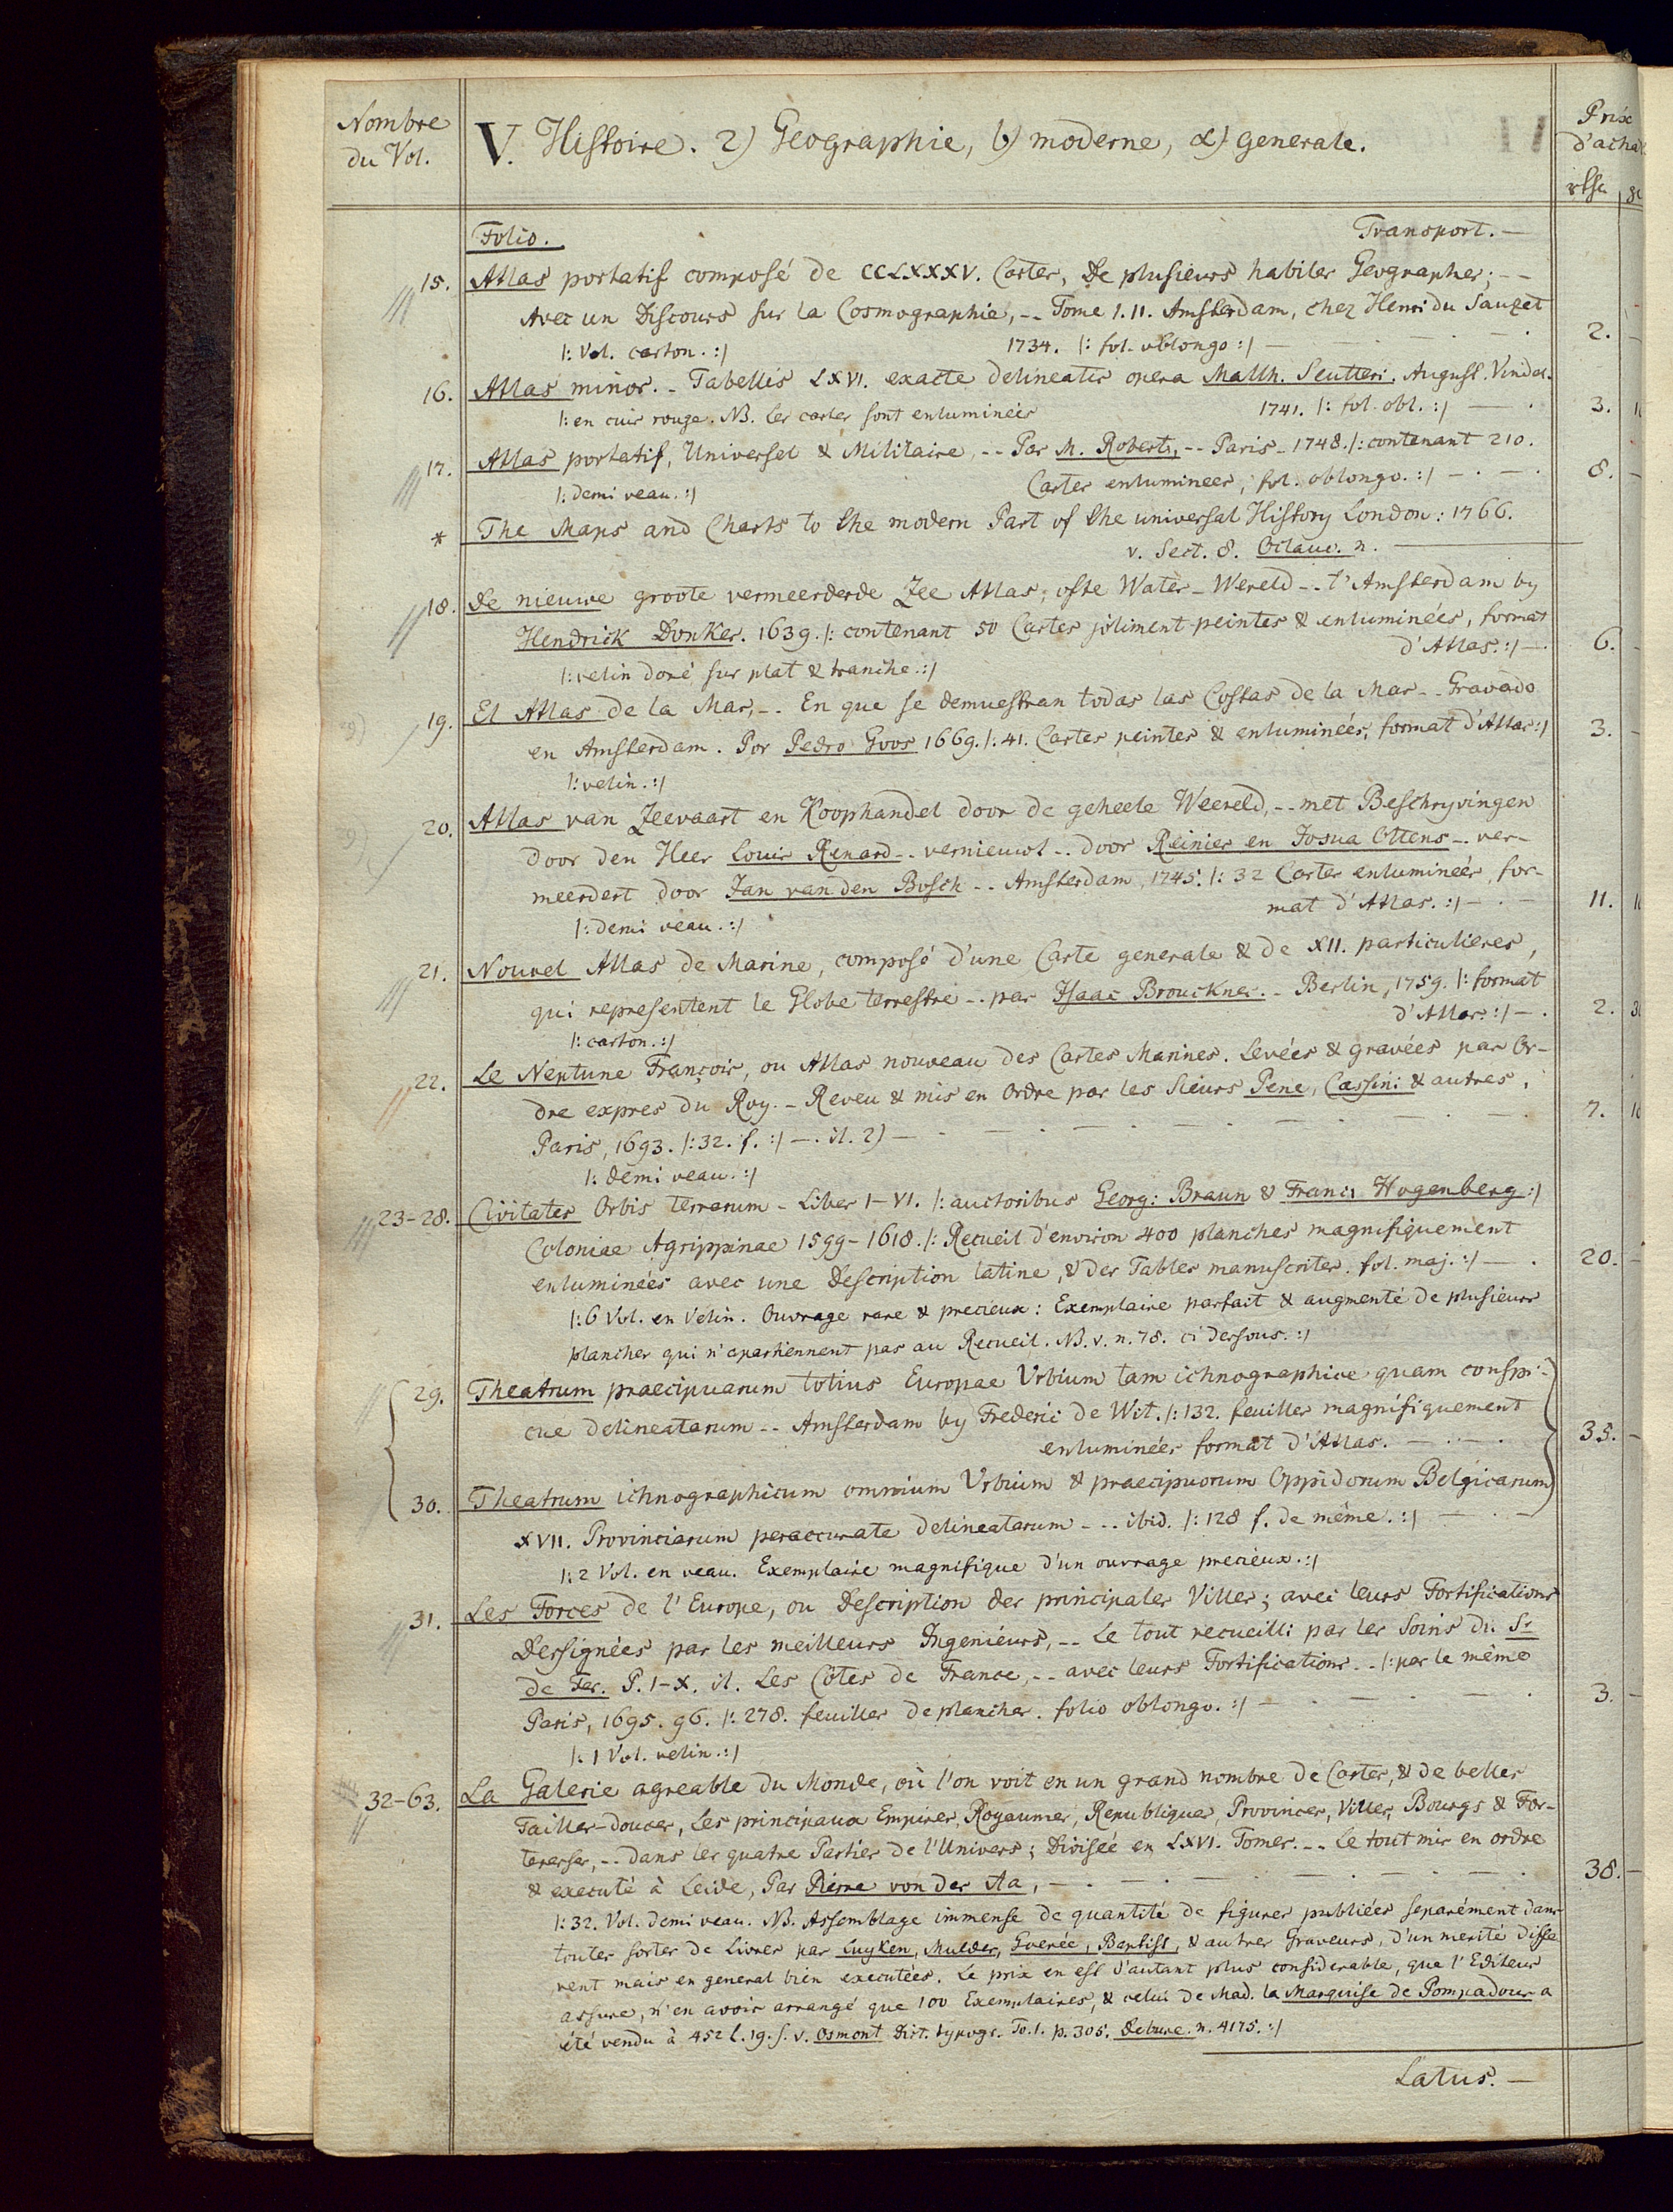 Nombre
du Vol.
V. Histoire. 2) Geographie, b) moderne, α) generale.
Prix
d'achat
rthr
Folio. Transport. —
15. Atlas portatif composé de CCLXXXV. Cartes, De plusieurs habiles Geographes; --
Avec un Discours sur la Cosmographie, -- Tome I. II. Amsterdam, chez Henri du Sauzet
|: Vol. carton. :| 1734. |: fol. oblongo :| — 2.
16. Atlas minor. - Tabellis LXVI. exacte delineatis opera Matth. Seutteri. August. Vindel.
|: en cuir rouge. NB. les cartes sont enluminées 1741. |: fol. obl. :| — 3.
17. Atlas portatif, Universel & Militaire, -- Par M. Robert, -- Paris - 1748. |: contenant 210.
|: demi veau. :| Cartes enluminees, fol. oblongo. :| — 8.
* The Maps and Charts to the modern Part of the universal History London: 1766.
v. Sect. 8. Octavo. n.
18. De nieuwe groote vermeerderde Zee Atlas, ofte Water-Wereld -- t'Amsterdam by
Hendrick Donker. 1639. |: contenant 50 Cartes joliment peintes & enluminées, format
d'Atlas. :| — 6.
|: velin doré sur plat & tranche. :|
19. El Atlas de la Mar, -. En que se demuestran todas las Costas de la Mar -. Gravado
en Amsterdam. Por Pedro Goos 1669. |: 41. Cartes peintes & enluminées, format d'Atlas :| 3.
|: velin. :|
20. Atlas van Zeevaart en Koophandel door de geheele Weereld, -- met Beschryvingen
door den Heer Louis Renard -. vernieuwt -. door Reinier en Josua Ottens -. ver-
meerdert door Jan van den Bosch -- Amsterdam, 1745. |: 32 Cartes enluminées, for-
mat d'Atlas. :| — 11.
|: demi veau. :|
21. Nouvel Atlas de Marine, composé d'une Carte generale & de XII. particulieres,
qui representent le Globe terrestre -. par Isaac Brouckner. - Berlin, 1759. |: format
d'Atlas. :| — 2.
|: carton. :|
22. Le Neptune François, ou Atlas nouveau des Cartes Marines. Levées & gravées par Or-
dre expres du Roy. - Reveu & mis en Ordre par les Sieurs Pene, Cassini & autres,
Paris, 1693. |: 32. f. :| —. it. 2) — 7.
|: demi veau. :|
23-28. Civitates Orbis terrarum - Liber I-VI. |: auctoribus Georg: Braun & Franc: Hogenberg :|
Coloniae Agrippinae 1599-1618. |: Recueil d'environ 400 planches magnifiquement
enluminées avec une Description latine, & des Tables manuscrites. fol. maj. :| — 20.
|: 6 Vol. en Velin. Ouvrage rare & precieux: Exemplaire parfait & augmenté de plusieurs
planches qui n'apartiennent pas au Recueil. NB. v. n. 78. ci dessous. :|
29. Theatrum praecipuarum totius Europae Urbium tam ichnographice quam conspi-
cue delineatarum -- Amsterdam by Frederic de Wit. |: 132. feuilles magnifiquement
enluminées format d'Atlas. — 35.
30. Theatrum ichnographicum omnium Urbium & praecipuorum Oppidorum Belgicarum
XVII. Provinciarum peraccurate delineatarum -.. ibid. |: 128 f. de même. :| —
|: 2 Vol. en veau. Exemplaire magnifique d'un ouvrage precieux. :|
31. Les Forces de l'Europe, ou Description des principales Villes; avec leurs Fortifications
Dessignées par les meilleurs Ingenieurs, -- Le tout recueilli par les Soins du Sr
de Fer. P. I-X. it. Les Côtes de France, -- avec leurs Fortifications -. |: par le même
Paris, 1695. 96. |: 278. feuilles de planches. folio oblongo. :| — 3.
|: 1 Vol. velin. :|
32-63. La Galerie agreable du Monde, où l'on voit en un grand nombre de Cartes, & de belles
Tailles-douces, Les principaux Empires, Royaumes, Republiques, Provinces, Villes, Bourgs & For-
teresses, -- dans les quatre Parties de l'Univers; Divisée en LXVI. Tomes. -- Le tout mis en ordre
& executé à Leide, Par Pierre von der Aa, — 38.
|: 32. Vol. demi veau. NB. Assemblage immense de quantité de figures publiées separément dans
toutes sortes de Livres par Luyken, Mulder, Goerée, Baptist, & autres Graveurs, d'un merite diffe
rent mais en general bien executées. Le prix en est d'autant plus considerable, que l'Editeur
assure, n'en avoir arrangé que 100 Exemplaires, & celui de Mad. la Marquise de Pompadour a
été vendu à 452 l. 19. s. v. Osmont Dict. typogr. To. 1. p. 305. Debure. n. 4175. :|
Latus. —